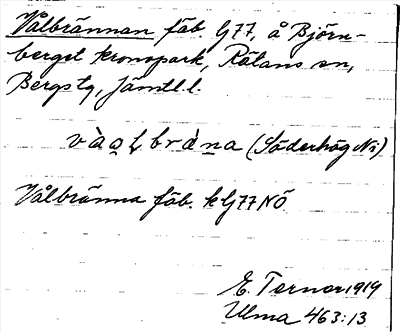 Vålbrännan fäb. G77, å Björn-
berget kronopark, Rätans sn,
Bergs tg, Jämtl. l.
vàoḷbràna (Söderhög N:1)
Vålbränna fäb. k G77 NÖ
E. Terner 1919
Ulma 463:13